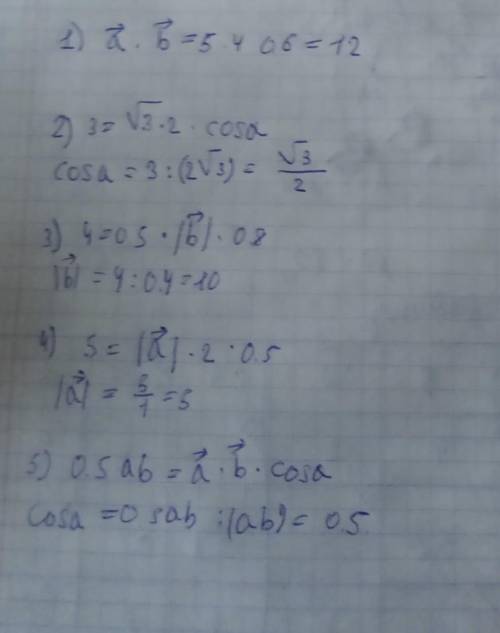 1) a⃗ · b⃗ = 5 · 4 0.6 = 12
2) 3 = √3 · 2 · cosa
cosa = 3 : (2√3) = √3/2
3) 4 = 0.5 · |b⃗| · 0.8
|b⃗| = 4 : 0.4 = 10
4) 5 = |a⃗| · 2 · 0.5
|a⃗| = 5/1 = 5
5) 0.5 ab = a⃗ · b⃗ · cosa
cosa = 0 5ab : (ab) = 0.5